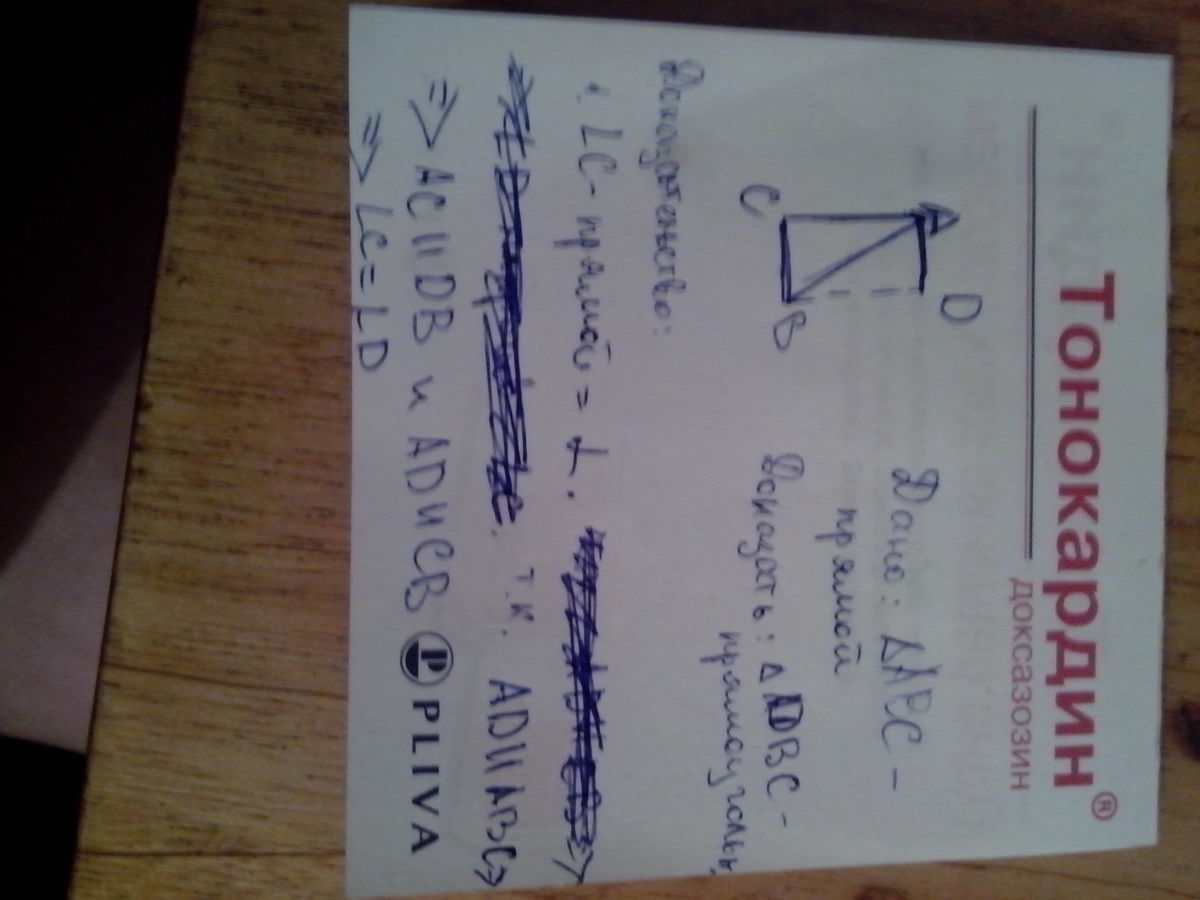 Тонокардин®
доксазозин
D
A
C
B
Дано: ΔАВС -
прямой
Доказать: Δ ADBC -
прямоугольн.
Доказательство:
1. ∠C - прямой = ⊥.
т.к. AD || ABC ⇒
⇒ AC || DB и AD || CB
⇒ ∠C = ∠D
PLIVA